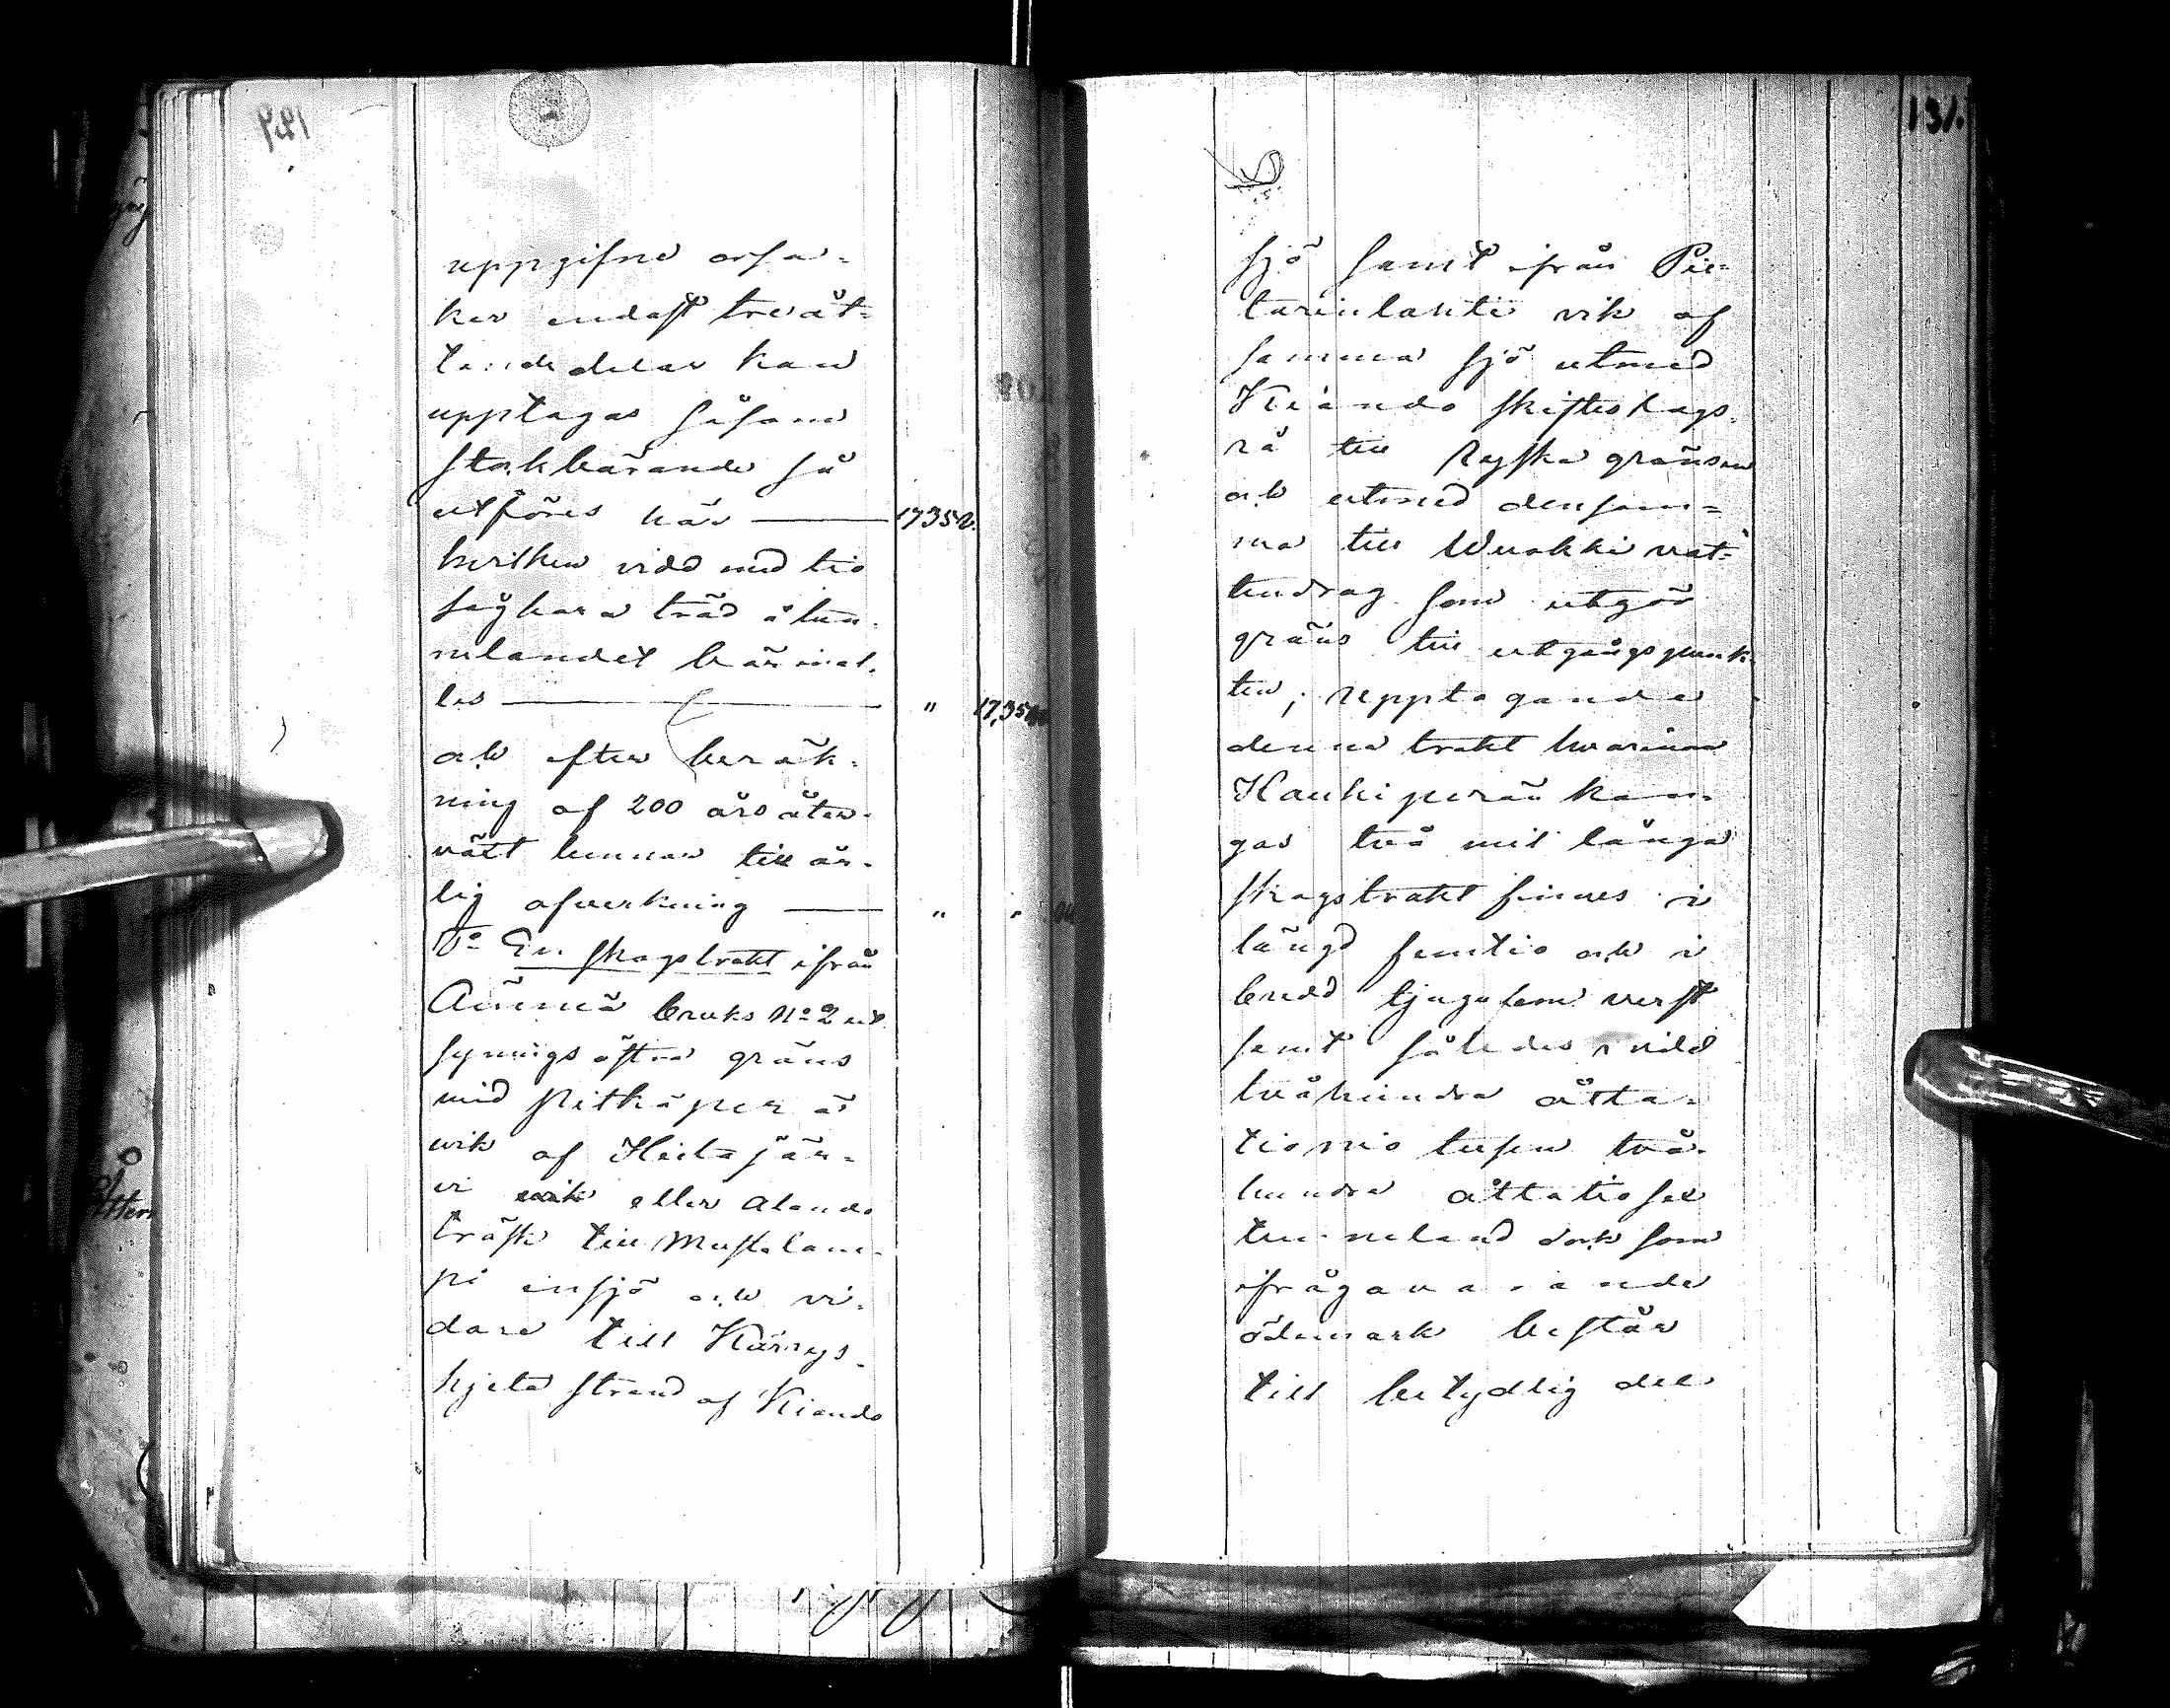 uppgifne orsa-
ker endast treåt-
tondedelar kan
upptagas såsom
stockbärande så
utföres här — 17352.
hvilken vidd med tio
sågbara träd å tun-
nelandet bär mal-
les — " 17,35
och efter beräk-
ning af 200 års åter-
växt kunna till år-
lig afverkning — "
V:o En skogstrakt ifrån
Ämmä bruks No 2 ut
synings östra gräns
vid Pitkäperä
wik af Hietajär-
vi eller Alando
träsk till Mustalam-
pi insjö och vi-
dare till Kärrys-
kjelä strand af Kiando
131.
sjö samt ifrån Pie-
tarinlahti vik af
samma sjö utmed
Kiando skifteslags
rå till Ryska gränsen
och utmed densam-
ma till Wuokki vat-
tendrag som utgör
gräns till utgångspunk-
ten; upptagande
denna trakt hvarinom
Haukiperän kan-
gas två mil långa
skogstrakt finnes i
längd femtio och i
bredd tjugufem verst
samt således i vidd
tvåhundra åtta-
tionio tusen två-
hundra åttatiosex
tunneland dock som
ifrågavarande
ödemark består
till betydlig del